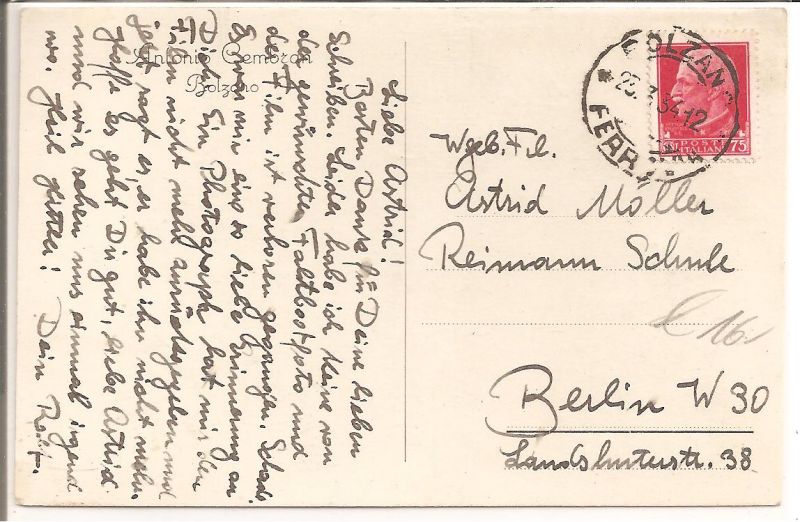 Liebe Astrid!
Besten Dank für Deine lieben
Schreiben. Leider habe ich keine von
den gewünschten Faltbootfoto und
der Film ist verloren gegangen. Schade
Es war mir eine so liebe Erinnerung an
Dich. Ein Photograph hat mir den
Film nicht mehr zurückgegeben und
jetzt sagt er, er habe ihn nicht mehr.
Hoffe es geht Dir gut, liebe Astrid
und wir sehen uns einmal irgend
wo. Heil Hitler! Dein
Antonio Gemoran
Bolzano
BOLZANO
FERR
23.
34.12
POSTE
ITALIANE
75
Wgb. Frl.
Astrid Möller
Reimann Schule
Berlin W 30
Landshuterstr. 38
16